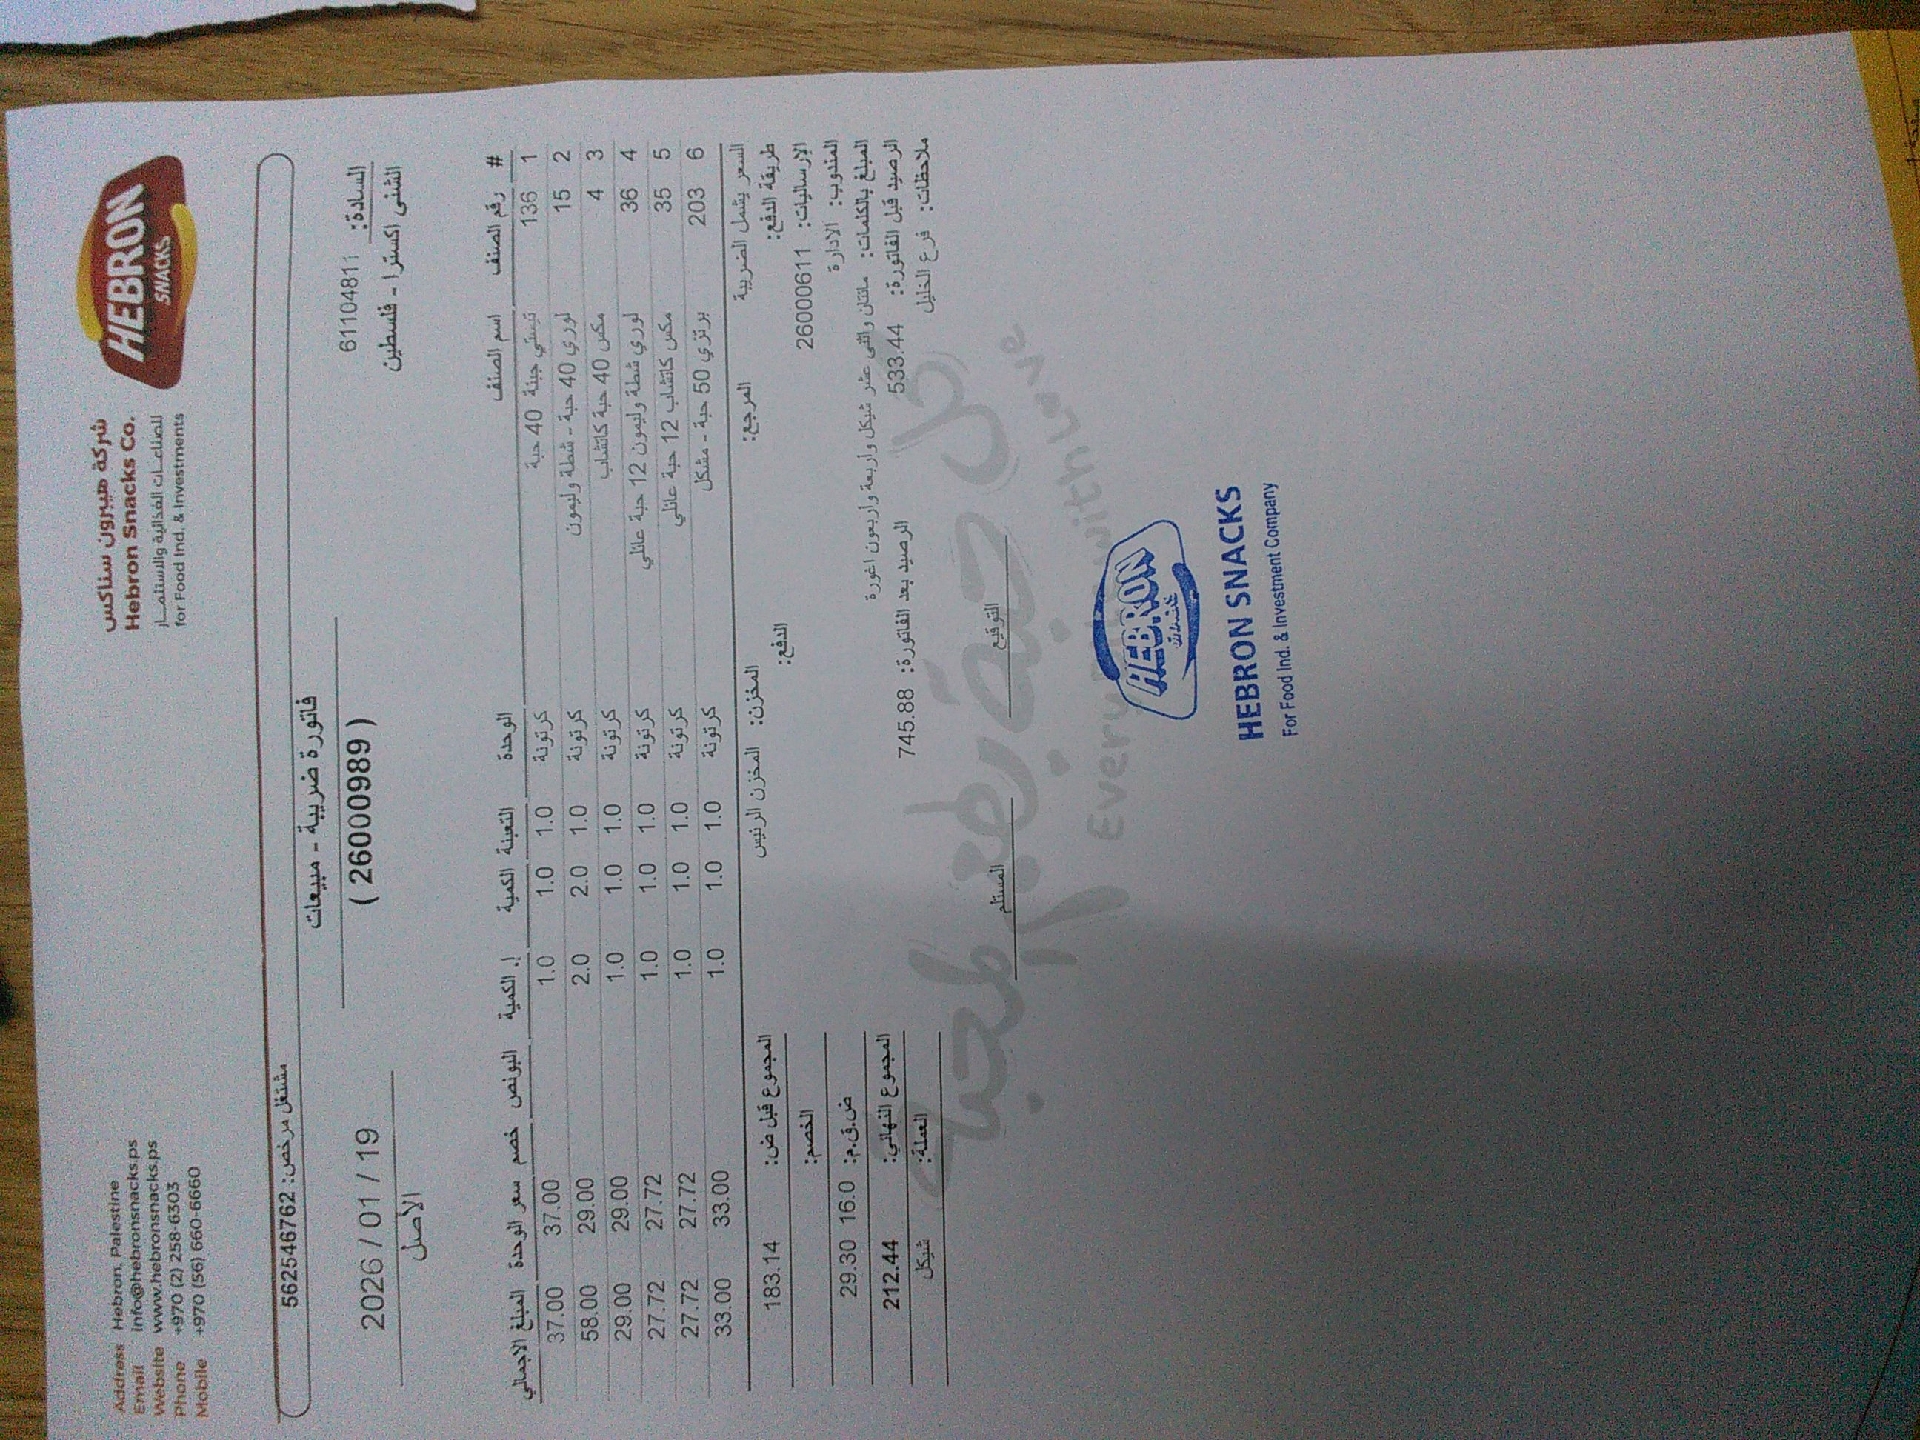 HEBRON
SNACKS
شركة هيبرون سناكس
Hebron Snacks Co.
للصناعات الغذائية والاستثمار
for Food Ind. & Investments
Address Hebron, Palestine
Email info@hebronsnacks.ps
Website www.hebronsnacks.ps
Phone +970 (2) 258-6303
Mobile +970 (56) 660-6660
مشتغل مرخص: 562546762
فاتورة ضريبية - مبيعات
( 26000989 )
السادة: 61104811
الشني اكسترا - فلسطين
2026 / 01 / 19
الأصل
# رقم الصنف اسم الصنف الوحدة التعبئة الكمية إ. الكمية البونص خصم سعر الوحدة المبلغ الاجمالي
1 136 تيستي جبنة 40 حبة كرتونة 1.0 1.0 1.0 37.00 37.00
2 15 لوري 40 حبة - شطة وليمون كرتونة 1.0 2.0 2.0 29.00 58.00
3 4 مكس 40 حبة كاتشاب كرتونة 1.0 1.0 1.0 29.00 29.00
4 36 لوري شطة وليمون 12 حبة عائلي كرتونة 1.0 1.0 1.0 27.72 27.72
5 35 مكس كاتشاب 12 حبة عائلي كرتونة 1.0 1.0 1.0 27.72 27.72
6 203 برتزي 50 حبة - مشكل كرتونة 1.0 1.0 1.0 33.00 33.00
السعر يشمل الضريبة المرجع: المخزن: المخزن الرئيس المجموع قبل ض: 183.14
طريقة الدفع: الدفع:
الإرساليات: 26000611 الخصم:
المندوب: الادارة ض.ق.م: 16.0 29.30
المبلغ بالكلمات: مائتان واثنى عشر شيكل واربعة واربعون اغورة
الرصيد قبل الفاتورة: 533.44 الرصيد بعد الفاتورة: 745.88 المجموع النهائي: 212.44
ملاحظات: فرع الخليل العملة: شيكل
التوقيع المستلم
كل حبة بطعم المحبة
Every with Love
HEBRON
HEBRON SNACKS
For Food Ind. & Investment Company